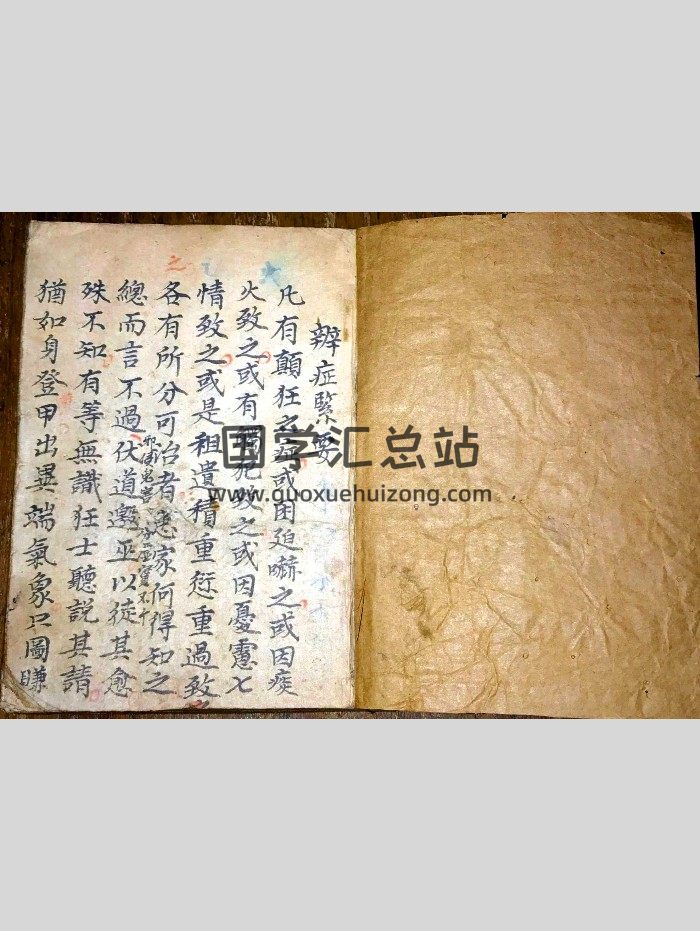 辨症緊要
凡有顛狂之症或因廹嚇之或因痰
火致之或有觸犯致之或因憂慮七
情致之或是祖遺積重愆重過致
各有所分可治者患家何得知之
總而言不過伏道邀巫以徒其愈
殊不知有等無識狂士聽説其請
猶如身登甲出異端氣象只圖賺
国学汇总站
www.guoxuehuizong.com